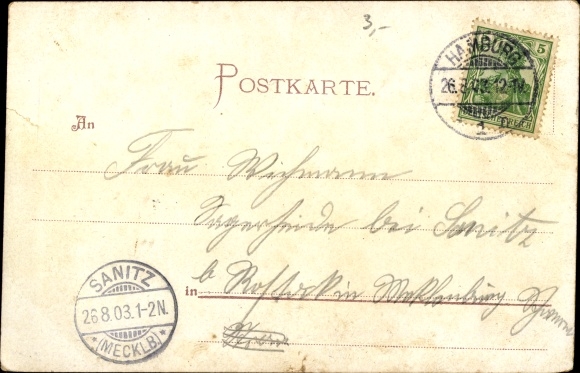 3,-
POSTKARTE.
5
HAMBURG
26.8.03.12-1N.
1
An
Frau Wichmann
Sagerheide bei Sanitz
in b Rostock in Meklenburg Schwerin
SANITZ
26.8.03.1-2N.
*(MECKLB)*